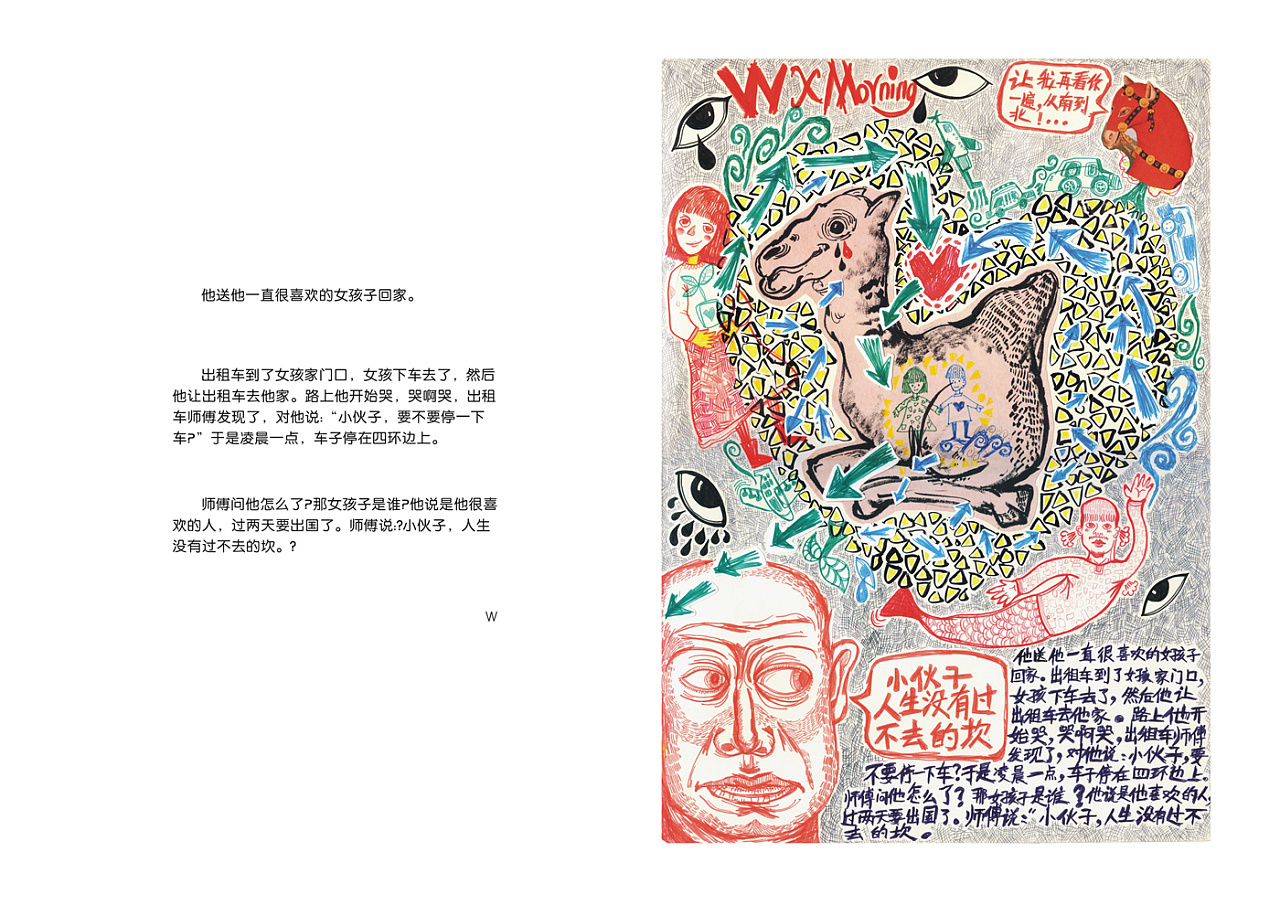 他送他一直很喜欢的女孩子回家。
出租车到了女孩家门口，女孩下车去了，然后
他让出租车去他家。路上他开始哭，哭啊哭，出租
车师傅发现了，对他说：“小伙子，要不要停一下
车?”于是凌晨一点，车子停在四环边上。
师傅问他怎么了?那女孩子是谁?他说是他很喜
欢的人，过两天要出国了。师傅说:?小伙子，人生
没有过不去的坎。?
W
W X Morning
让我再看你
一遍，从南到
北！...
小伙子
人生没有过
不去的坎
他送他一直很喜欢的女孩子
回家。出租车到了女孩家门口，
女孩下车去了，然后他让
出租车去他家。路上他开
始哭，哭啊哭，出租车师傅
发现了，对他说：小伙子，要
不要停一下车？于是凌晨一点，车子停在四环边上。
师傅问他怎么了？那女孩子是谁？他说是他喜欢的人，
过两天要出国了。师傅说：“小伙子，人生没有过不
去的坎。